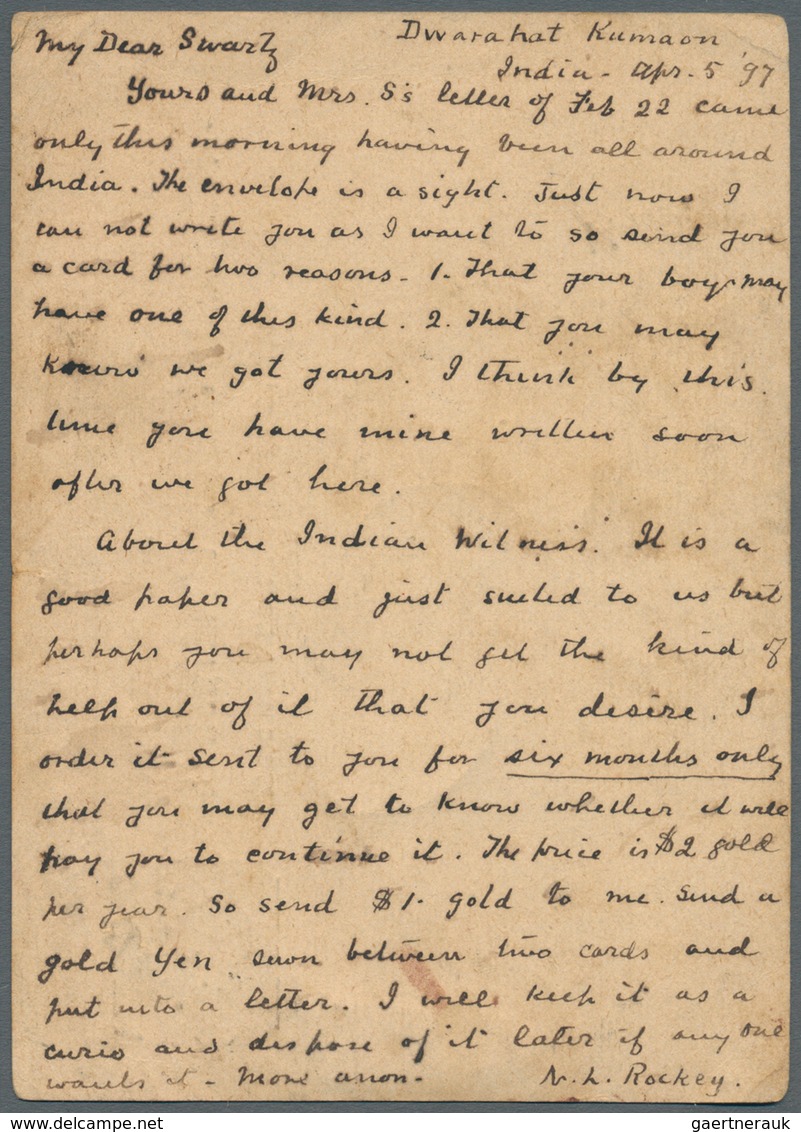 Dwarahat Kumaon
My Dear Swartz
India - Apr. 5 '97
Yours and Mrs. S's letter of Feb 22 came
only this morning having been all around
India. The envelope is a sight. Just now I
can not write you as I want to so send you
a card for two reasons - 1. That your boys may
have one of this kind. 2. That you may
know we got yours. I think by this
time you have mine written soon
after we got here.
About the Indian Witness. It is a
good paper and just suited to us but
perhaps you may not get the kind of
help out of it that you desire. I
order it sent to you for six months only
that you may get to know whether it will
pay you to continue it. The price is $2 gold
per year. So send $1. gold to me. Send a
gold Yen sewn between two cards and
put into a letter. I will keep it as a
curio and dispose of it later if any one
wants it - More anon - N. L. Rockey.
gaertnerauk